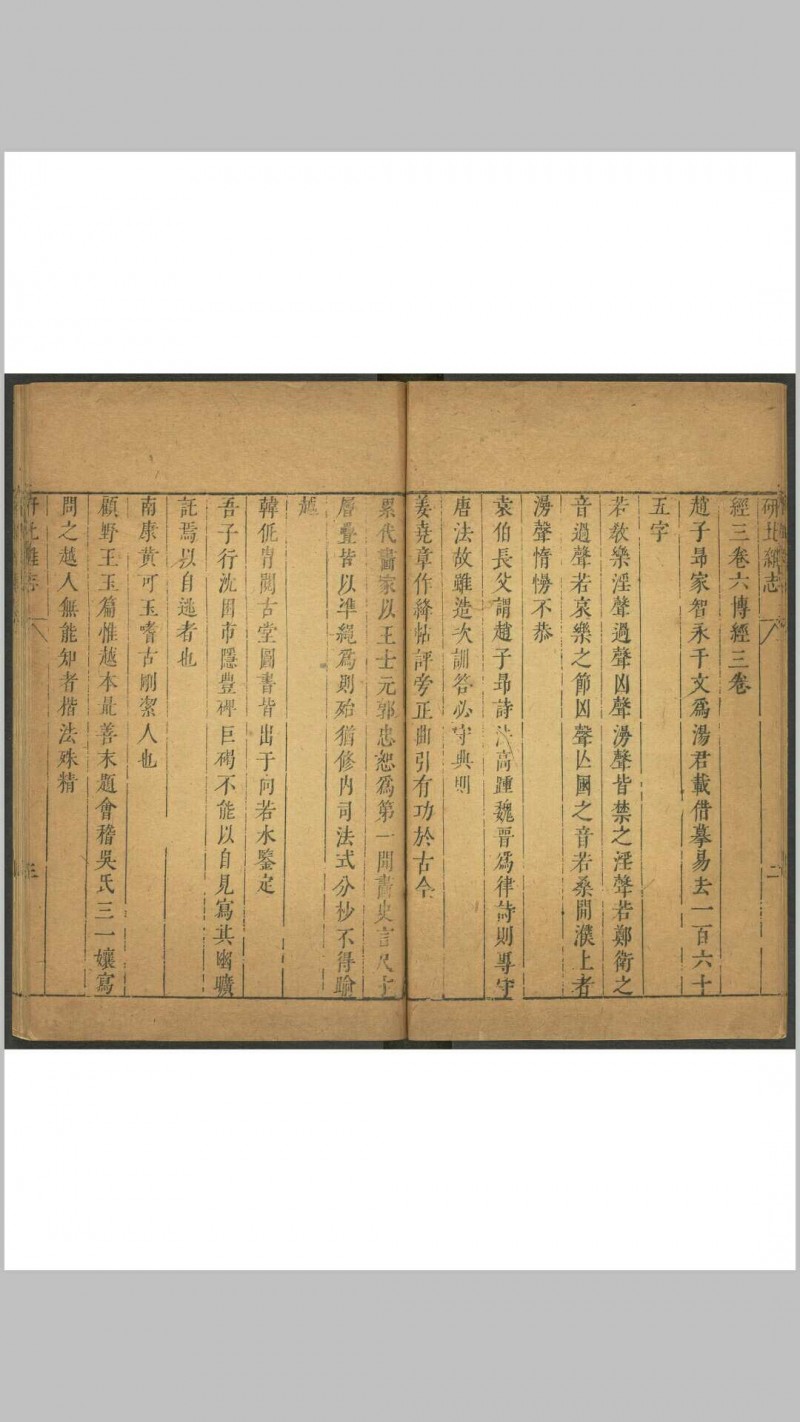 研北雜志 二
經三卷六博經三卷
趙子昻家智永千文爲湯君載借摹易去一百六十
五字
若敎樂淫聲過聲凶聲㴢聲皆禁之淫聲若鄭衛之
音過聲若哀樂之節凶聲亾國之音若桑間濮上者
㴢聲惰慢不恭
袁伯長父謂趙子昻詩法高踵魏晋爲律詩則專守
唐法故雖造次訓答必守典則
姜堯章作絳帖評旁正曲引有功於古今
累代畵家以王士元郭忠恕爲第一聞畵史言尺寸
層疊皆以凖繩爲則殆猶修内司法式分杪不得踰
越
韓侂胄閱古堂圖書皆出于向若水鑒定
吾子行沈困市隱豊碑巨碣不能以自見寫其幽曠
託焉以自逃者也
南康黄可玉嗜古剛潔人也
顧野王玉篇惟越本㝡善末題會稽吳氏三一孃寫
問之越人無能知者楷法殊精
研北雜志 三